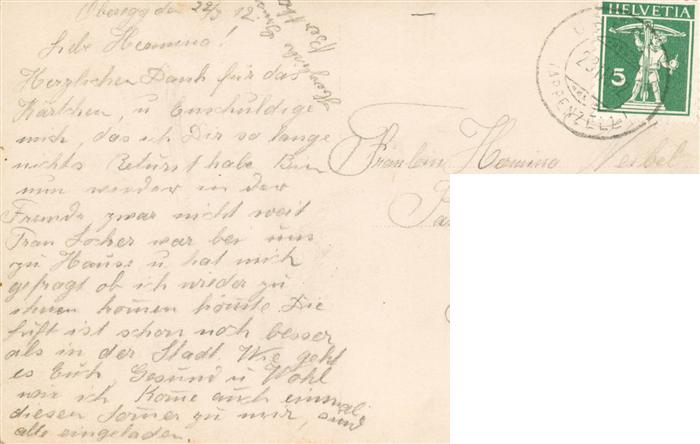 Oberegg den 22/3 12
Liebe Hermina!
Herzlichen Dank für das
Kärtchen, u Enschuldige
mich, das ich Dir so lange
nichts habe Bin
nun wieder in der
Fremde, zwar nicht weit
Frau Locher war bei uns
zu Hause u hat mich
gefragt ob ich wieder zu
ihnen kommen könnte Die
Luft ist schon noch besser
als in der Stadt. Wie geht
es Euch, Gesund u Wohl
wie ich. Kome auch einmal
diesen Somer zu mir, sind
alle eingeladen.
Fräulein Hermina
HELVETIA
5
(APPENZELL)